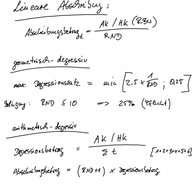 Lineare Abschreibung:
Abschreibungsbetrag t = AK / HK (RBW) / RND
geometrisch-degressiv
max. Degressionssatz = min [ 2,5 × 1 / RND ; 0,25 ]
RND ≤ 10 => 25%
arithmetisch-degressiv
Degressionsbetrag = AK / HK / Σ t
Abschreibungsbetrag = (RND+1) × Degressionsbetrag